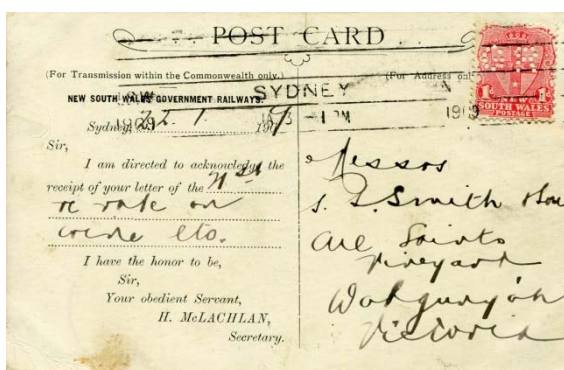 POST CARD
(For Transmission within the Commonwealth only.)
(For Address only
NEW SOUTH WALES GOVERNMENT RAILWAYS.
SYDNEY
1 PM
1909
1909
Sydney, 190
Sir,
I am directed to acknowledge the
receipt of your letter of the 21st
re rate on
wine etc.
I have the honor to be,
Sir,
Your obedient Servant,
H. McLACHLAN,
Secretary.
1 1
NEW
SOUTH WALES
POSTAGE
Messrs
Smith
All Saints
Vineyard
Wahgunyah
Victoria